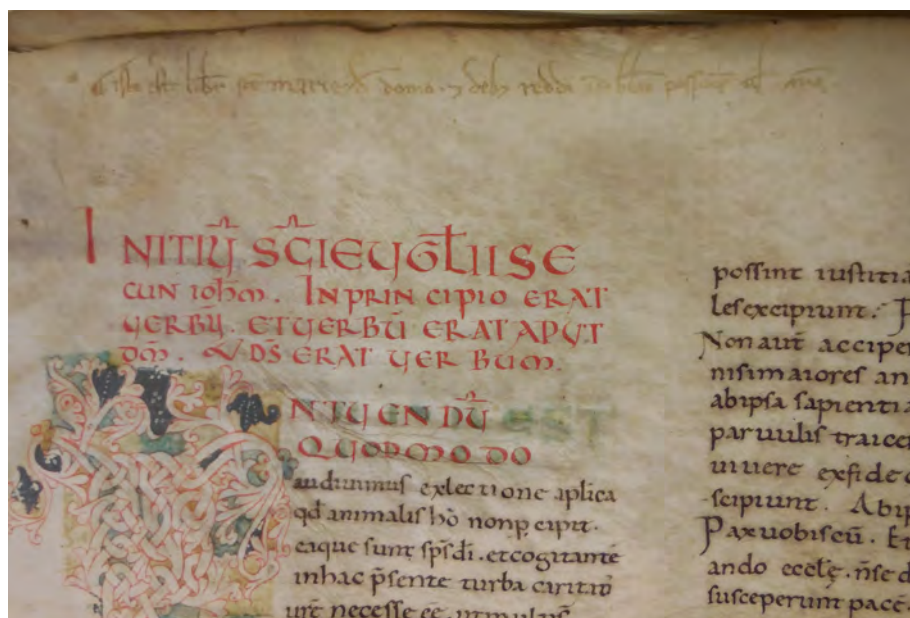 iste est liber sce marie d domo. 7 deb3 reddi
INITIŪ SC̄I EUGL̄II SE
CUN IOHM̄. IN PRINCIPIO ERAT
UERBŪ. ET UERBŪ ERAT APUT
DM̄. & DS̄ ERAT UERBUM.
NTUENDŪ EST
QUODMODO
audiuimus ex lectione aplica
qd animalis hō non p̄cipit.
eaque sunt sps dī. et cogitante
in hac p̄sente turba caritatis
urē necesse eē. ut
possint iustitia
les excipiunt. 
Non aut̄ acciper
nisi maiores an
ab ipsa sapientia
paruulis traicer
uiuere ex fide
scipiunt. Ab ip
Pax uobiscū. Et
ando ecclę. n̄se d
susceperunt pacē